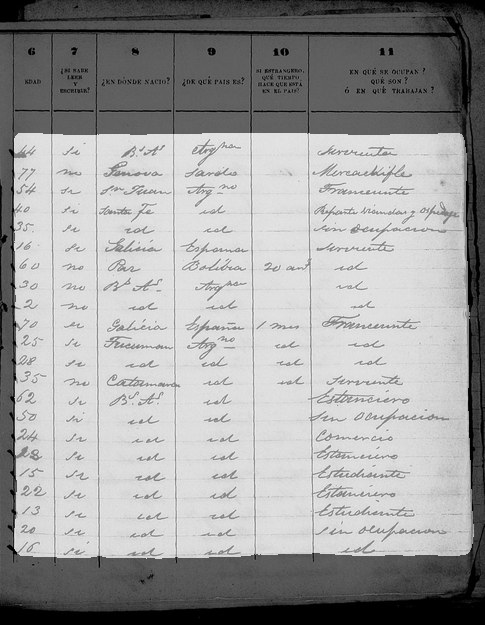 6 7 8 9 10 11
EDAD ¿SI SABE LEER Y ESCRIBIR? ¿EN DÓNDE NACIÓ? ¿DE QUÉ PAIS ES? SI ESTRANGERO, QUÉ TIEMPO HACE QUE ESTÁ EN EL PAIS? EN QUÉ SE OCUPAN? QUÉ SON? Ó EN QUÉ TRABAJAN?
44 si Bs As Argna Sirvienta
77 no Genova Sardo
54 si Sn Juan Argno Transeunte
40 si Santa Fe id
35 si id id sin ocupacion
16 si Galicia Espana Sirviente
60 no Paz Bolibia 20 ans id
30 no Bs As Argna id
2 no id id id
70 si Galicia España 1 mes Transeunte
25 si Tucuman Argno id id
28 si id id id id
35 no Catamarca id id Sirviente
62 si Bs As id Estanciero
50 si id id sin ocupacion
24 si id id Comercio
28 si id id Estanciero
15 si id id Estudiante
22 si id id Estanciero
13 si id id Estudiante
20 si id id sin ocupacion
16 si id id id